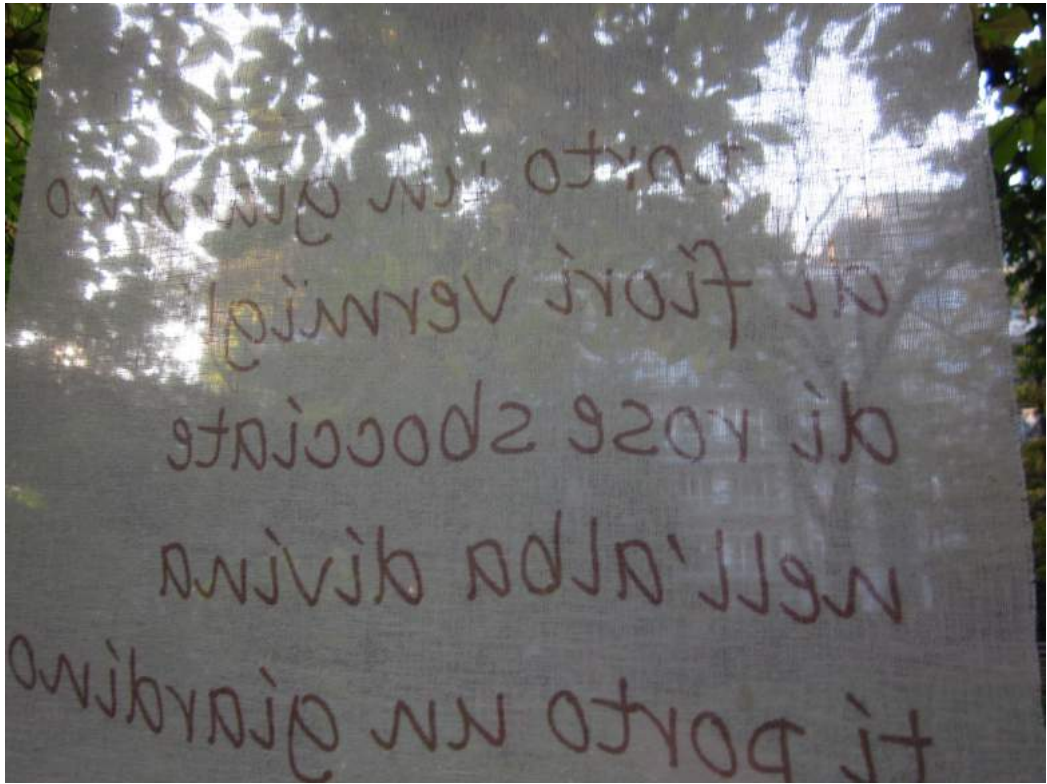 porto un giardino
di fiori vermigl
di rose sbocciate
nell'alba divina
ti porto un giardino